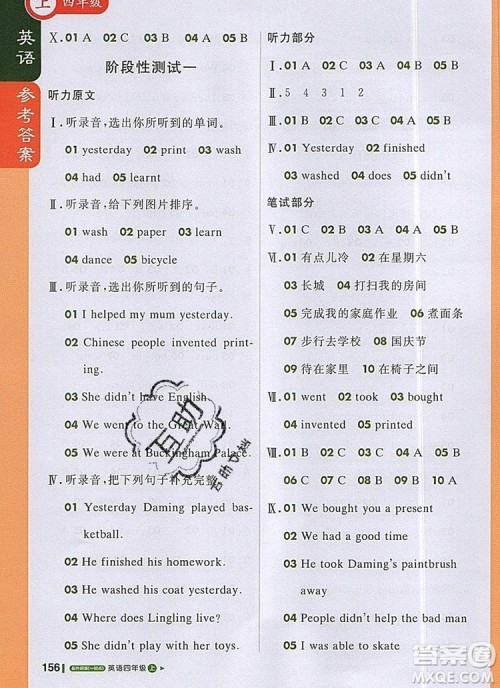 上 四年级
英语
参考答案
Ⅹ. 01 A 02 C 03 C 04 A 05 B
阶段性测试一
听力原文
Ⅰ. 听录音,选出你所听到的单词。
01 yesterday 02 print 03 wash
04 had 05 learnt
Ⅱ. 听录音,给下列图片排序。
01 wash 02 paper 03 learn
04 dance 05 bicycle
Ⅲ. 听录音,选出你所听到的句子。
01 I helped my mum yesterday.
02 Chinese people invented print-
ing.
03 She didn't have English.
04 We went to the Great Wall.
05 We were at Buckingham Palace.
Ⅳ. 听录音,把下列句子补充完整。
01 Yesterday Daming played bas-
ketball.
02 He finished his homework.
03 He washed his coat yesterday.
04 Where does Lingling live?
05 She didn't play with her toys.
156 英语四年级 上
听力部分
Ⅰ. 01 B 02 C 03 A 04 C 05 B
Ⅱ. 5 4 3 1 2
Ⅲ. 01 B 02 C 03 A 04 A 05 B
Ⅳ. 01 Yesterday 02 finished
03 washed 04 does 05 didn't
笔试部分
Ⅴ. 01 C 02 B 03 A 04 A 05 B
Ⅵ. 01 有点儿冷 02 在星期六
03 长城 04 打扫我的房间
05 完成我的家庭作业 06 煮面条
07 步行去学校 08 国庆节
09 待在家里 10 在椅子之间
Ⅶ. 01 went 02 took 03 invented
04 bought 05 had
Ⅷ. 01 B 02 C 03 A 04 B 05 B
06 C 07 C 08 B 09 B 10 A
Ⅸ. 01 We bought you a present
02 We finished our homework
03 I took Daming's paintbrush
away
04 I didn't help the bad man
05 I was able to skate
互助
作业帮
答案
MXQE.COM